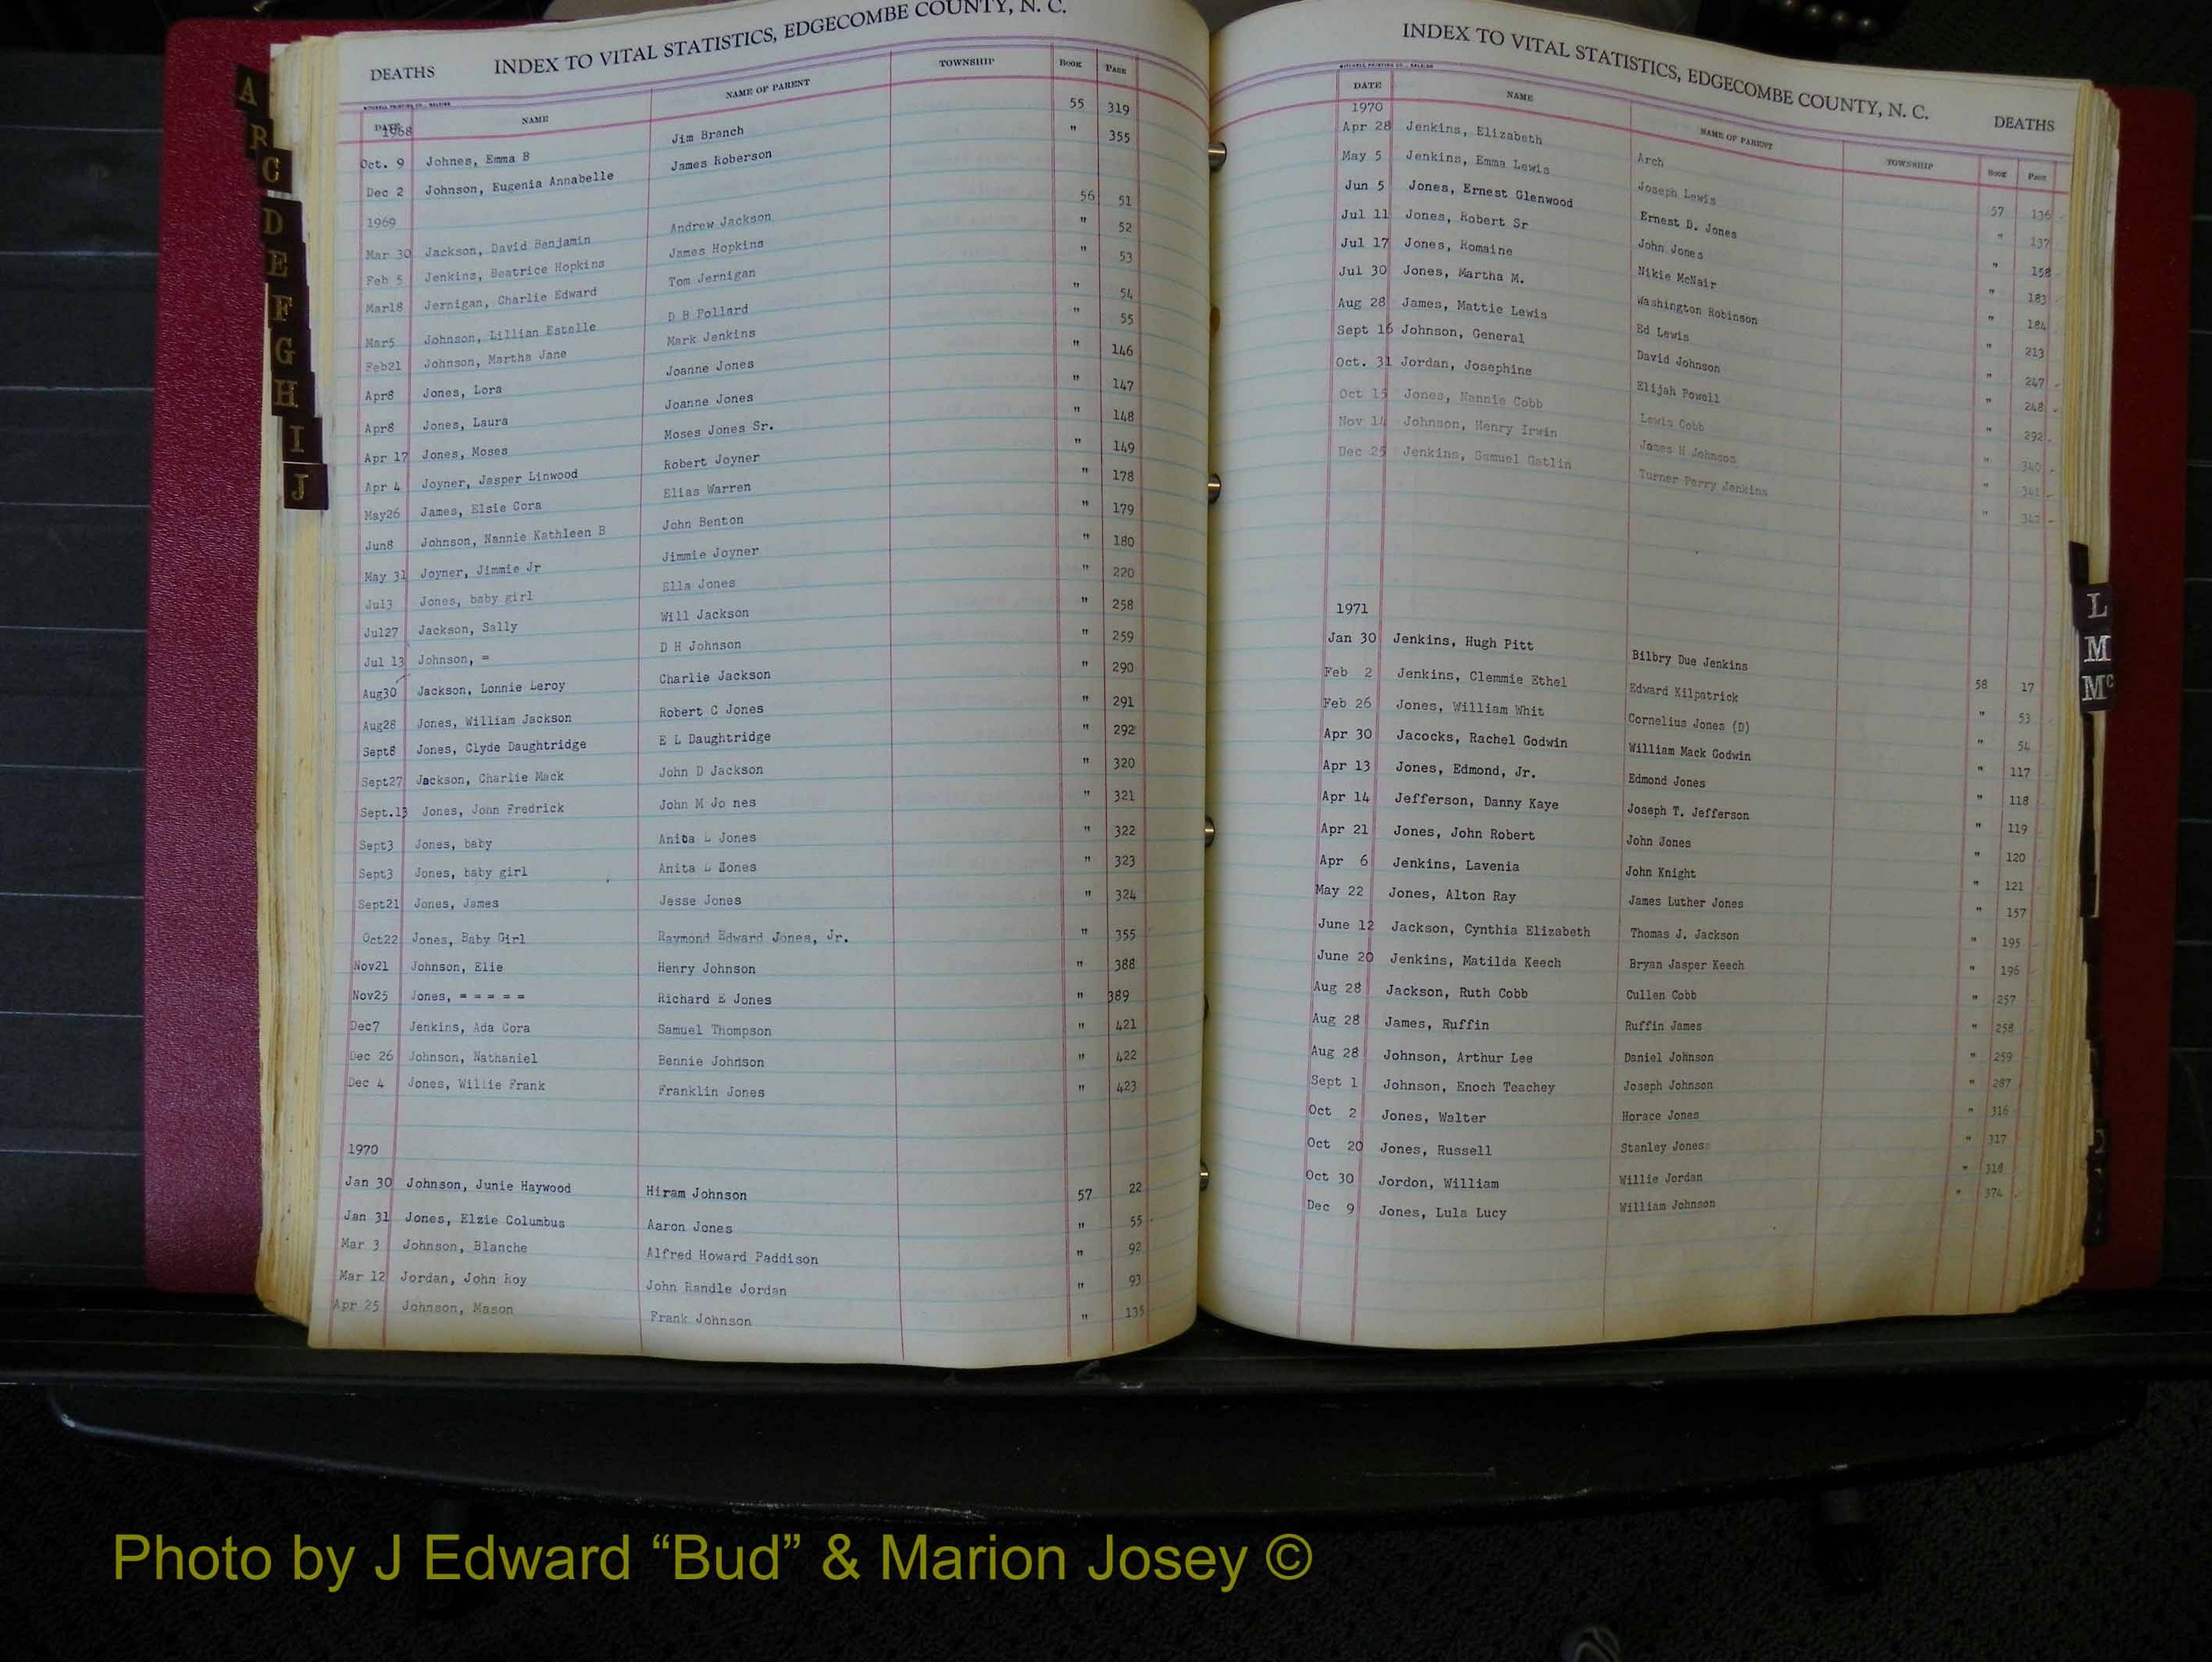 DEATHS INDEX TO VITAL STATISTICS, EDGECOMBE COUNTY, N. C.
MITCHELL PRINTING CO., RALEIGH
DATE NAME NAME OF PARENT TOWNSHIP BOOK PAGE
1968
Oct. 9 Johnes, Emma B Jim Branch 55 319
Dec 2 Johnson, Eugenia Annabelle James Roberson " 355
1969
Mar 30 Jackson, David Benjamin Andrew Jackson 56 51
Feb 5 Jenkins, Beatrice Hopkins James Hopkins " 52
Mar18 Jernigan, Charlie Edward Tom Jernigan " 53
Mar5 Johnson, Lillian Estelle D B Pollard " 54
Feb21 Johnson, Martha Jane Mark Jenkins " 55
Apr8 Jones, Lora Joanne Jones " 146
Apr8 Jones, Laura Joanne Jones " 147
Apr 17 Jones, Moses Moses Jones Sr. " 148
Apr 4 Joyner, Jasper Linwood Robert Joyner " 149
May26 James, Elsie Cora Elias Warren " 178
Jun8 Johnson, Nannie Kathleen B John Benton " 179
May 31 Joyner, Jimmie Jr Jimmie Joyner " 180
Jul3 Jones, baby girl Ella Jones " 220
Jul27 Jackson, Sally Will Jackson " 258
Jul 13 Johnson, = D H Johnson " 259
Aug30 Jackson, Lonnie Leroy Charlie Jackson " 290
Aug28 Jones, William Jackson Robert C Jones " 291
Sept8 Jones, Clyde Daughtridge E L Daughtridge " 292
Sept27 Jackson, Charlie Mack John D Jackson " 320
Sept.13 Jones, John Fredrick John M Jo nes " 321
Sept3 Jones, baby Anita L Jones " 322
Sept3 Jones, baby girl Anita L Jones " 323
Sept21 Jones, James Jesse Jones " 324
Oct22 Jones, Baby Girl Raymond Edward Jones, Jr. " 355
Nov21 Johnson, Elie Henry Johnson " 388
Nov25 Jones, = = = = = Richard E Jones " 389
Dec7 Jenkins, Ada Cora Samuel Thompson " 421
Dec 26 Johnson, Nathaniel Bennie Johnson " 422
Dec 4 Jones, Willie Frank Franklin Jones " 423
1970
Jan 30 Johnson, Junie Haywood Hiram Johnson 57 22
Jan 31 Jones, Elzie Columbus Aaron Jones " 55
Mar 3 Johnson, Blanche Alfred Howard Paddison " 92
Mar 12 Jordan, John Roy John Randle Jordan " 93
Apr 25 Johnson, Mason Frank Johnson " 135
A
B
C
D
E
F
G
H
I
J
INDEX TO VITAL STATISTICS, EDGECOMBE COUNTY, N. C. DEATHS
MITCHELL PRINTING CO., RALEIGH
DATE NAME NAME OF PARENT TOWNSHIP BOOK PAGE
1970
Apr 28 Jenkins, Elizabeth Arch 57 136
May 5 Jenkins, Emma Lewis Joseph Lewis " 137
Jun 5 Jones, Ernest Glenwood Ernest D. Jones " 158
Jul 11 Jones, Robert Sr John Jones " 183
Jul 17 Jones, Romaine Nikie McNair " 184
Jul 30 Jones, Martha M. Washington Robinson " 213
Aug 28 James, Mattie Lewis Ed Lewis " 247
Sept 16 Johnson, General David Johnson " 248
Oct. 31 Jordan, Josephine Elijah Powell " 292
Oct 15 Jones, Nannie Cobb Lewis Cobb " 340
Nov 14 Johnson, Henry Irwin James H Johnson " 341
Dec 25 Jenkins, Samuel Gatlin Turner Perry Jenkins " 342
1971
Jan 30 Jenkins, Hugh Pitt Bilbry Due Jenkins 58 17
Feb 2 Jenkins, Clemmie Ethel Edward Kilpatrick " 53
Feb 26 Jones, William Whit Cornelius Jones (D) " 54
Apr 30 Jacocks, Rachel Godwin William Mack Godwin " 117
Apr 13 Jones, Edmond, Jr. Edmond Jones " 118
Apr 14 Jefferson, Danny Kaye Joseph T. Jefferson " 119
Apr 21 Jones, John Robert John Jones " 120
Apr 6 Jenkins, Lavenia John Knight " 121
May 22 Jones, Alton Ray James Luther Jones " 157
June 12 Jackson, Cynthia Elizabeth Thomas J. Jackson " 195
June 20 Jenkins, Matilda Keech Bryan Jasper Keech " 196
Aug 28 Jackson, Ruth Cobb Cullen Cobb " 257
Aug 28 James, Ruffin Ruffin James " 258
Aug 28 Johnson, Arthur Lee Daniel Johnson " 259
Sept 1 Johnson, Enoch Teachey Joseph Johnson " 287
Oct 2 Jones, Walter Horace Jones " 316
Oct 20 Jones, Russell Stanley Jones " 317
Oct 30 Jordon, William Willie Jordan " 318
Dec 9 Jones, Lula Lucy William Johnson " 374
L
M
Mc
Photo by J Edward “Bud” & Marion Josey ©